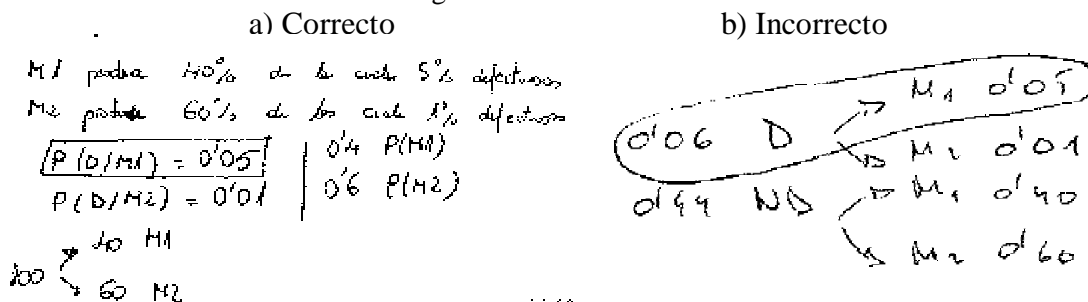 a) Correcto
M1 produce 40% de los cuales 5% defectuosos
M2 produce 60% de los cuales 1% defectuosos
P(D/M1) = 0'05
P(D/M2) = 0'01
0'4 P(M1)
0'6 P(M2)
100
40 M1
60 M2
b) Incorrecto
0'06 D
M1 0'05
M2 0'01
ND
M1 0'40
M2 0'60